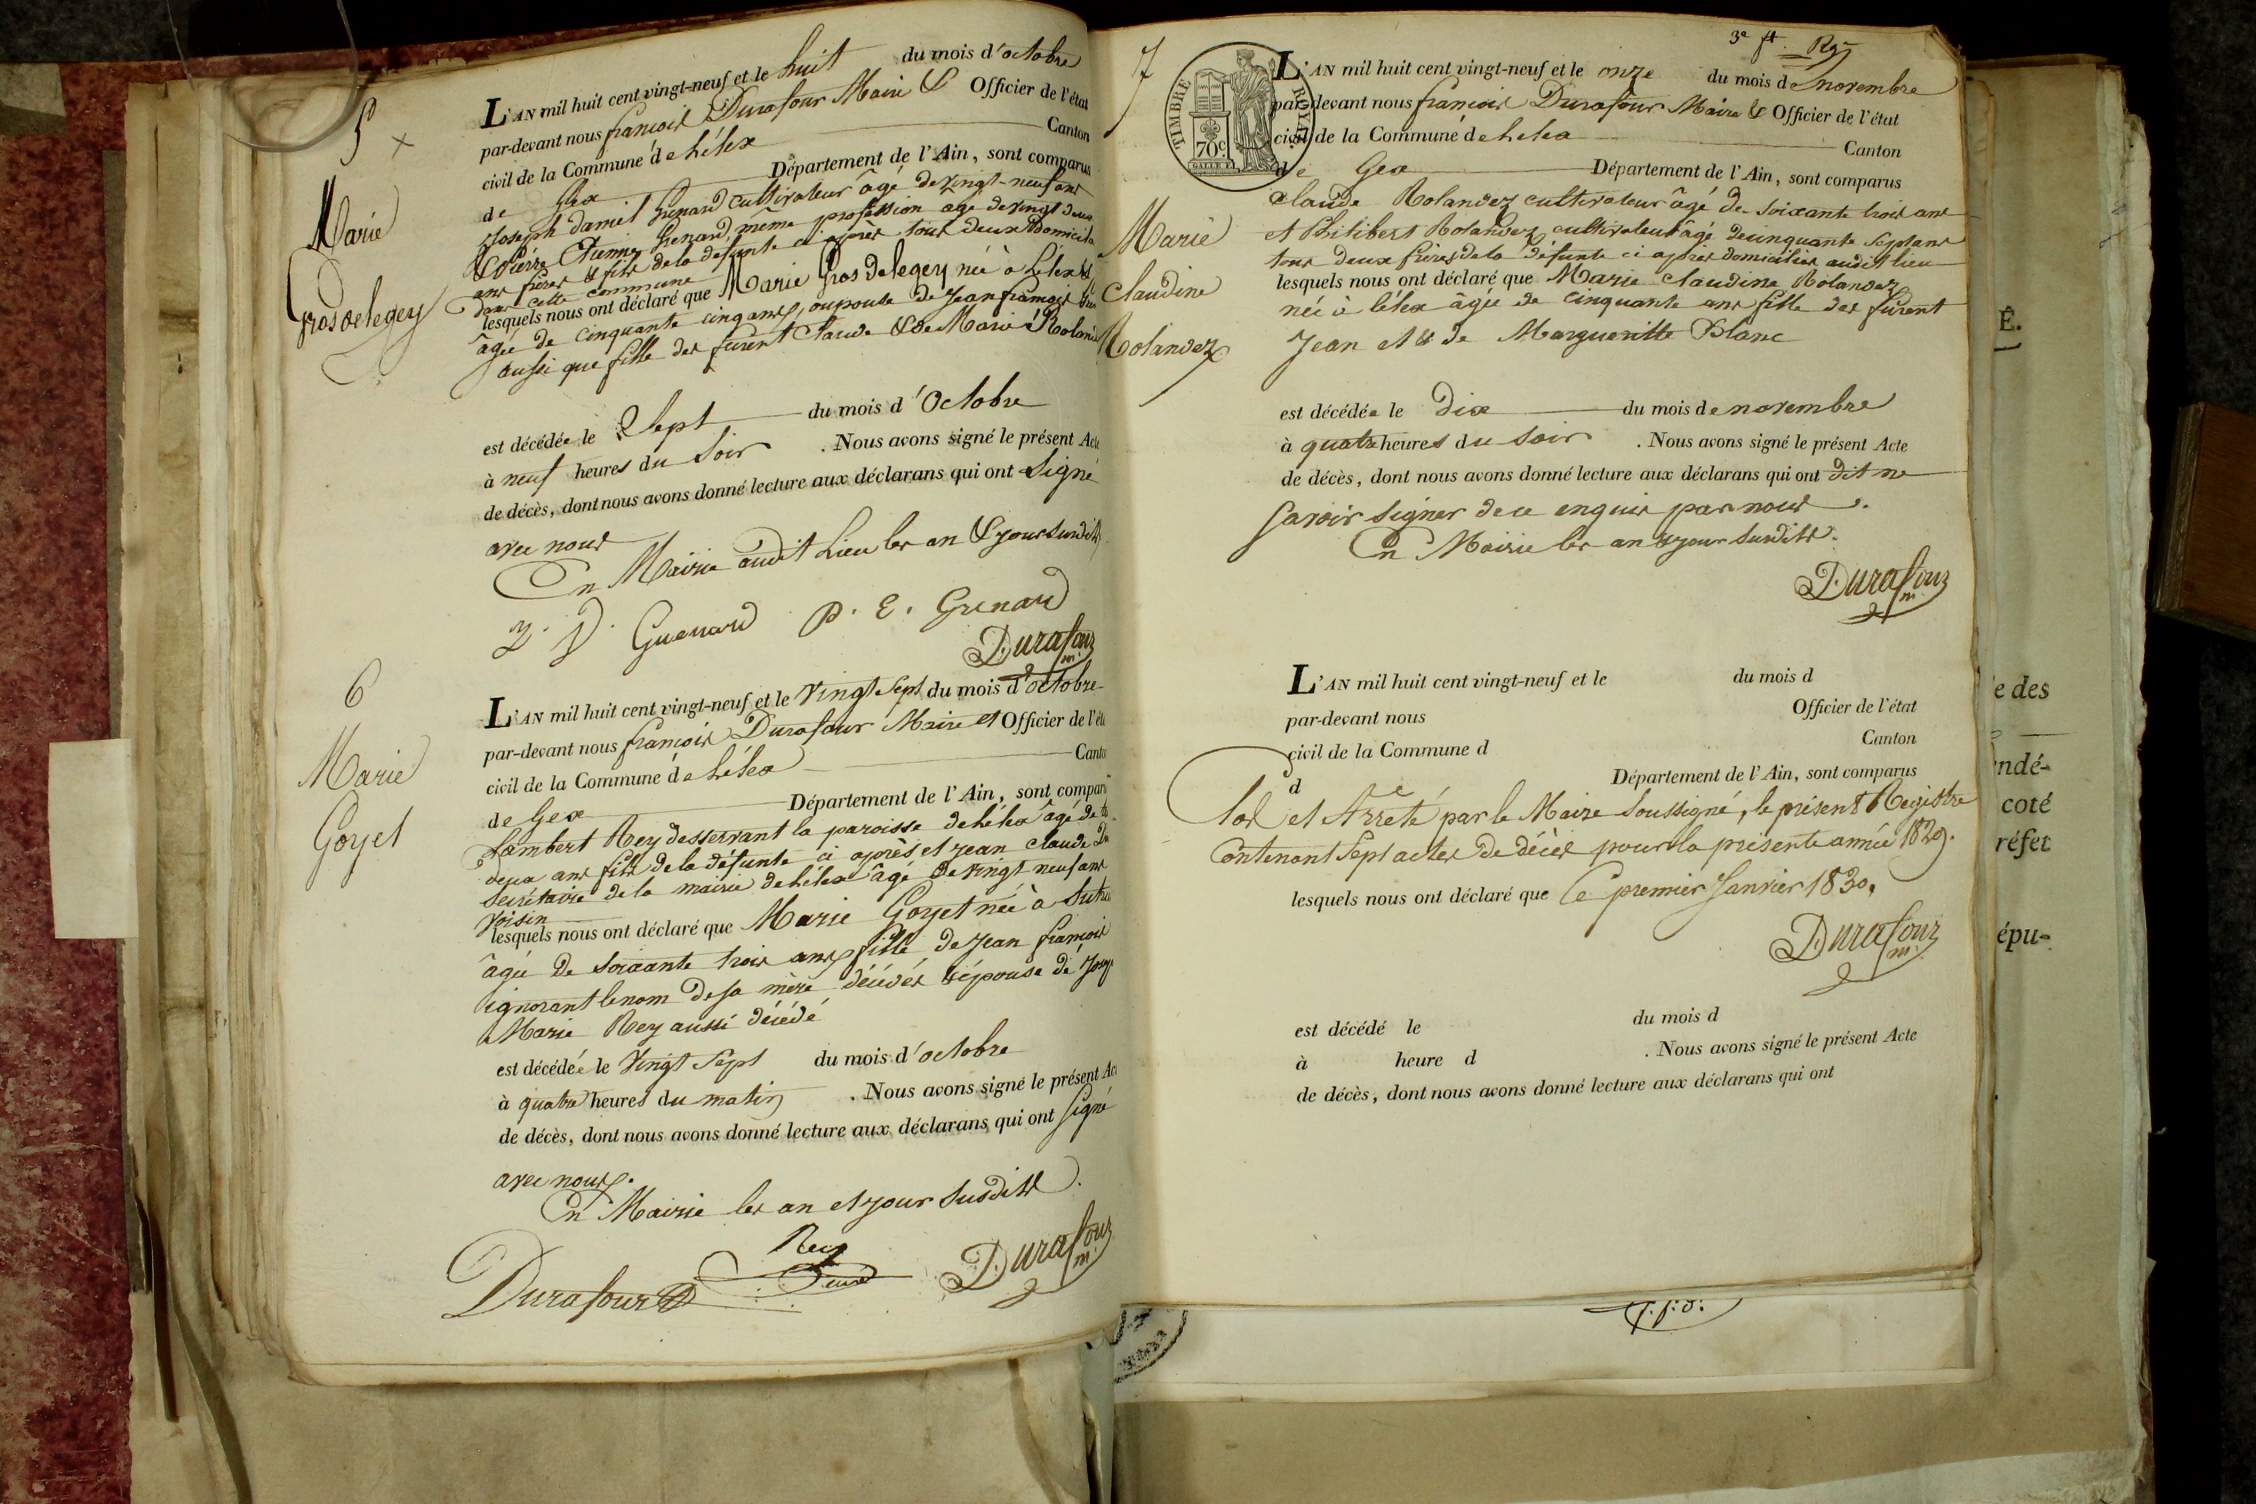 5 ×
Marie
Grosdelegey
L'AN mil huit cent vingt-neuf et le huit du mois d'octobre
par-devant nous françois Durafour Maire & Officier de l'état
civil de la Commune de Lélex Canton
de Gex Département de l'Ain, sont comparus
Joseph daniel Grenard cultivateur âgé de vingt-neuf ans
& Pierre Etienne Grenard, même profession age de vingt deux
ans frères & fils de la défunte ci après tous deux domiciliés
dans cette commune
lesquels nous ont déclaré que Marie Gros delegey née à Lélex &
âgée de cinquante cinq ans, épouse de Jean françois
aussi que fille des furent Claude & de Marie Roland
est décédée le Sept du mois d'Octobre
à neuf heures du Soir . Nous avons signé le présent Acte
de décès, dont nous avons donné lecture aux déclarans qui ont Signé
avec nous
En Mairie audit Lieu les an & jour susdits
J. D. Guenard P. E. Grenard
Durafour m.
6
Marie
Goyet
L'AN mil huit cent vingt-neuf et le vingt sept du mois d'octobre
par-devant nous françois Durafour Maire et Officier de l'éta
civil de la Commune de Lélex Canto
de Gex Département de l'Ain, sont compar
Lambert Rey desservant la paroisse de Lélex âgé de
deux ans fils de la défunte ci après et jean claude Du
Secrétaire de la mairie de Lélex âgé de vingt neuf ans
voisin
lesquels nous ont déclaré que Marie Goyet née à
âgée de soixante trois ans fille de Jean françois
ignorant le nom de sa mère décédés & épouse de
Marie Rey aussi décédé
est décédée le vingt Sept du mois d'octobre
à quatre heures du matin . Nous avons signé le présent Ac
de décès, dont nous avons donné lecture aux déclarans, qui ont Signé
avec nous.
En Mairie les an et jour susdits.
Durafour Rey Curé Durafour m.
3e ft. Rg
7
Marie
Claudine
Rolandez
TIMBRE ROYAL
70c.
L'AN mil huit cent vingt-neuf et le onze du mois de novembre
par-devant nous françois Durafour Maire & Officier de l'état
civil de la Commune de Lélex Canton
de Gex Département de l'Ain, sont comparus
Claude Rolandez cultivateur âgé de soixante trois ans
et Philibert Rolandez cultivateur âgé de cinquante sept ans
tous deux frères de la défunte ci après domiciliés audit lieu
lesquels nous ont déclaré que Marie claudine Rolandez
née à Lélex âgée de cinquante ans fille des furent
Jean et & de Marguerite Blanc
est décédée le dix du mois de novembre
à quatre heures du soir . Nous avons signé le présent Acte
de décès, dont nous avons donné lecture aux déclarans qui ont dit ne
savoir signer de ce enquis par nous.
En Mairie les an & jour susdits.
Durafour m.
L'AN mil huit cent vingt-neuf et le du mois d
par-devant nous Officier de l'état
civil de la Commune d Canton
d Département de l'Ain, sont comparus
Clos et Arreté par le Maire Soussigné, le présent Registre
contenant Sept actes de décès pour la présente année 1829.
lesquels nous ont déclaré que Ce premier Janvier 1830.
Durafour m.
est décédé le du mois d
à heure d . Nous avons signé le présent Acte
de décès, dont nous avons donné lecture aux déclarans qui ont
É.
e des
ndé-
coté
réfet
épu-